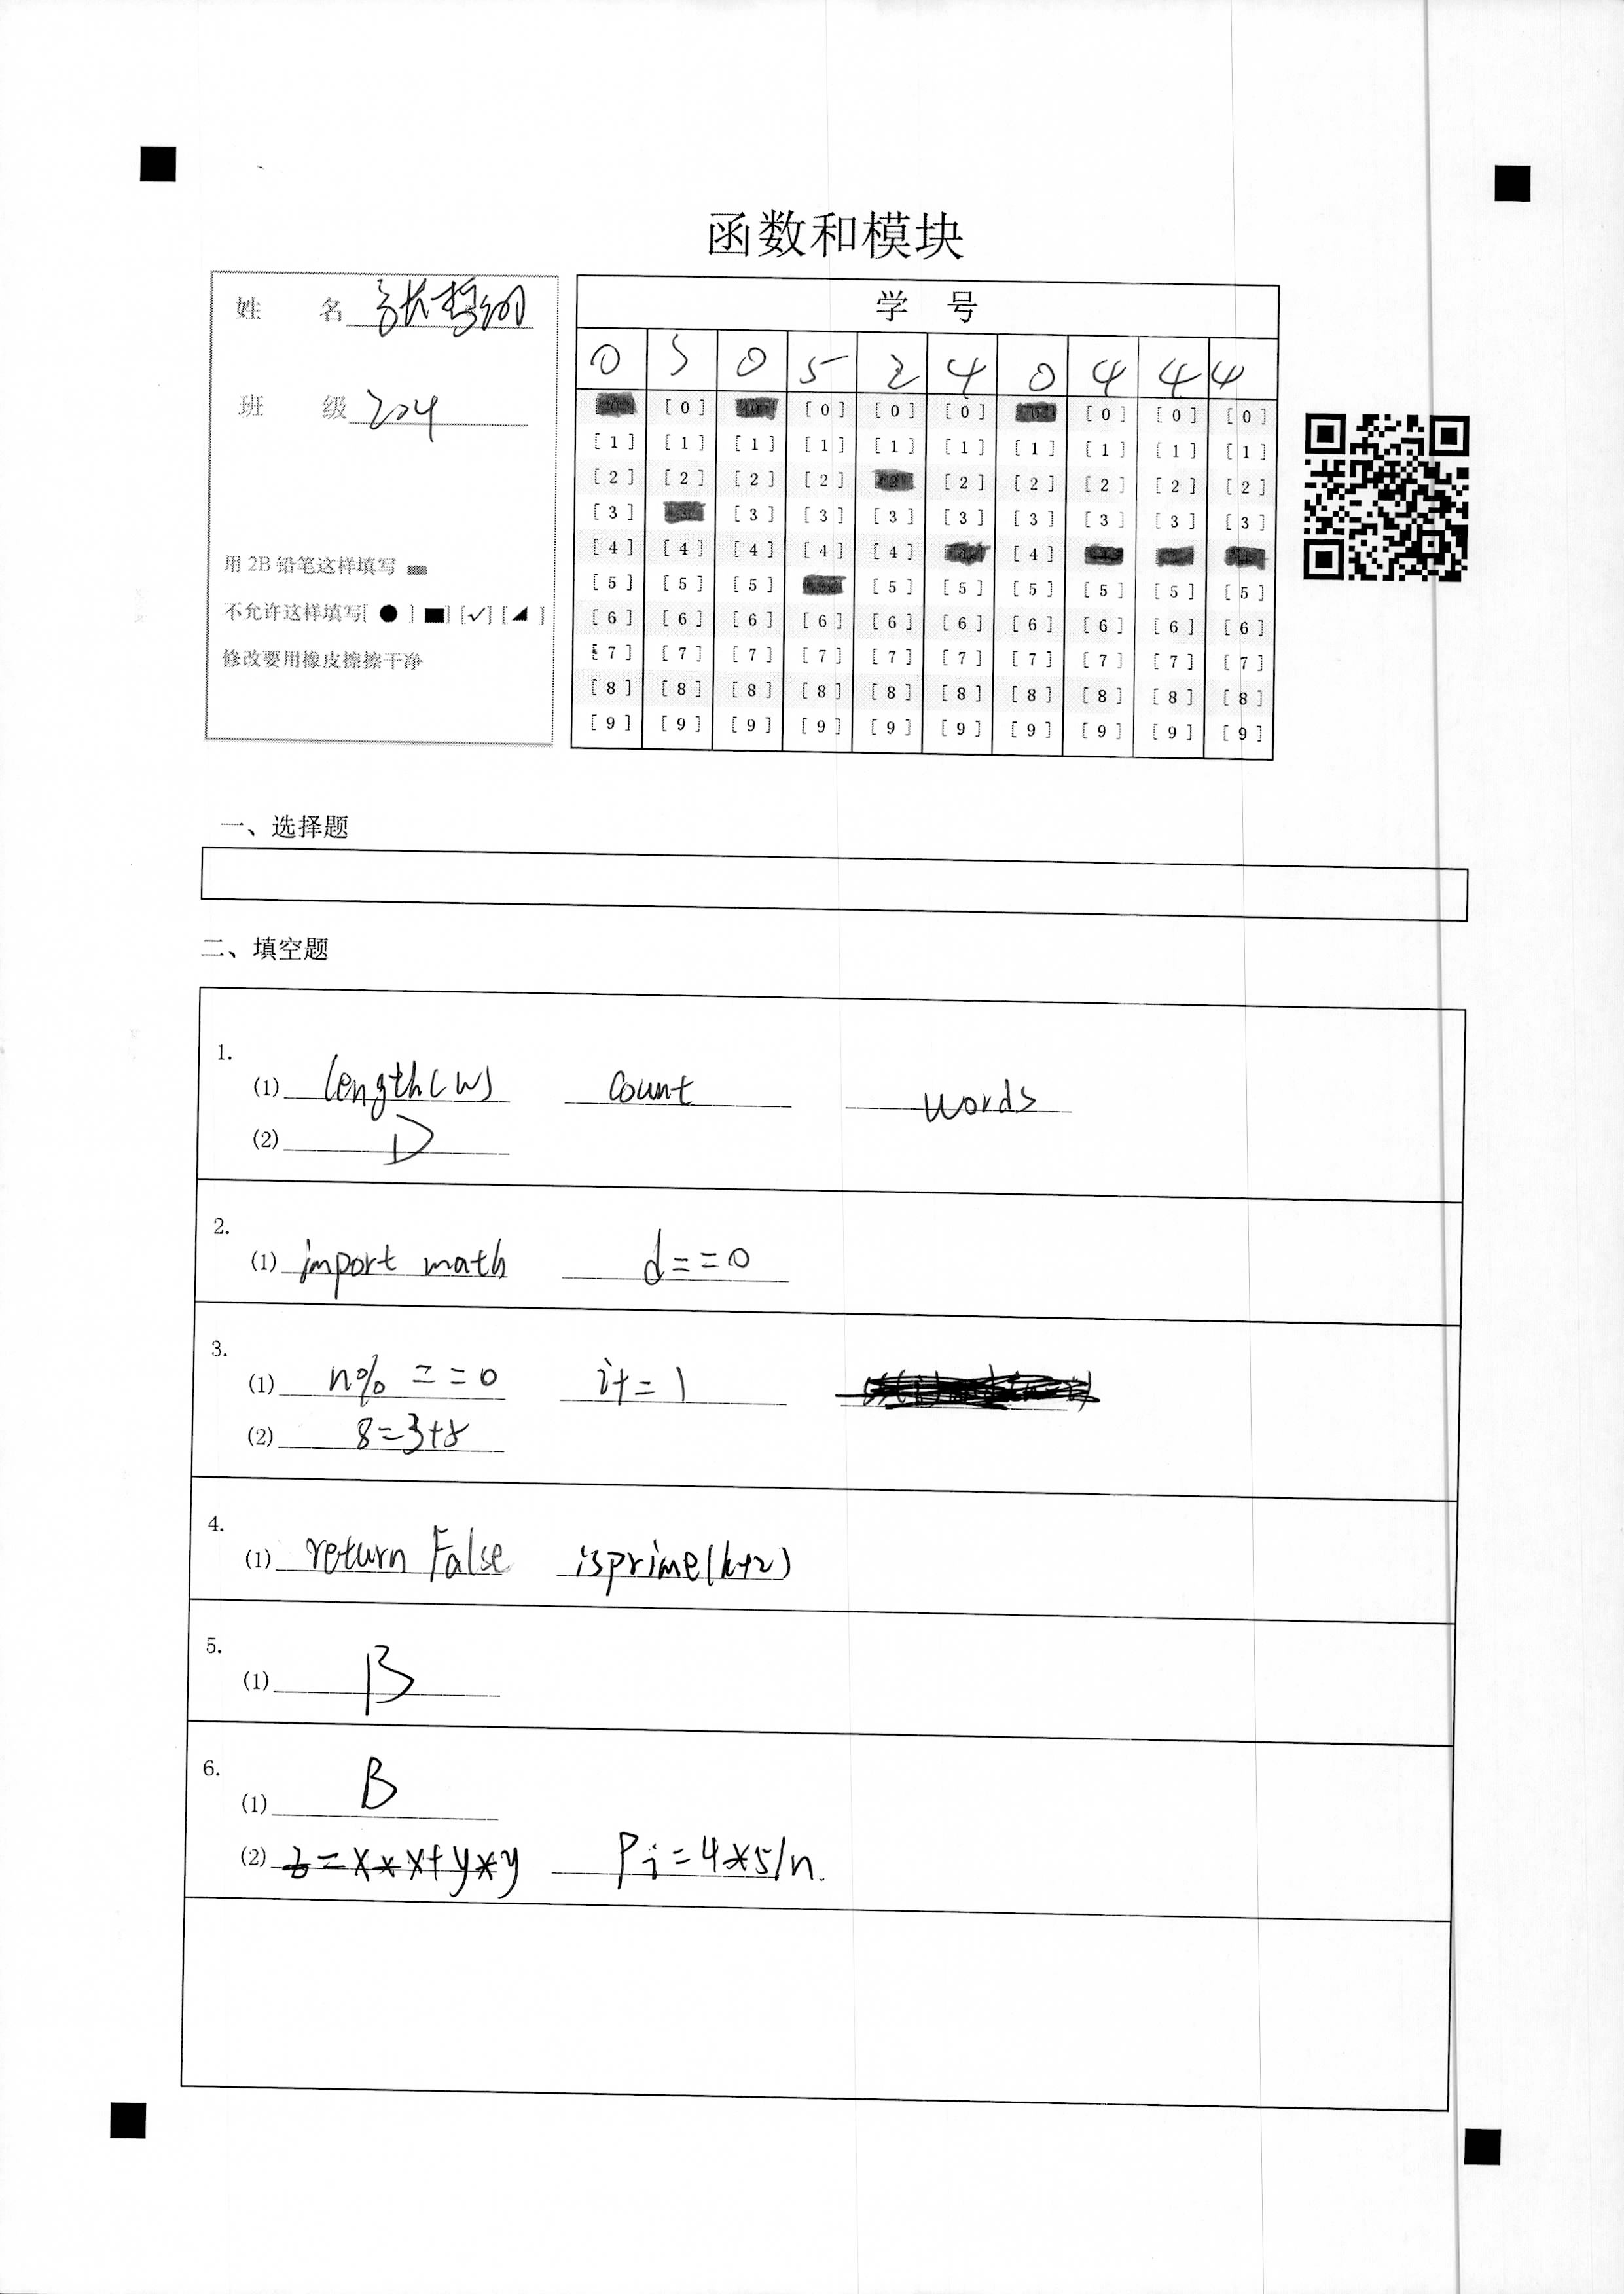 函数和模块
姓 名 张
班 级 204
用 2B 铅笔这样填写
不允许这样填写[ ● ] [■] [✓] [◢ ]
修改要用橡皮擦擦干净
学 号
0 3 0 5 2 4 0 4 4 4
[0] [0] [0] [0] [0] [0] [0]
[1] [1] [1] [1] [1] [1] [1] [1] [1] [1]
[2] [2] [2] [2] [2] [2] [2] [2] [2]
[3] [3] [3] [3] [3] [3] [3] [3] [3]
[4] [4] [4] [4] [4] [4]
[5] [5] [5] [5] [5] [5] [5] [5] [5]
[6] [6] [6] [6] [6] [6] [6] [6] [6] [6]
[7] [7] [7] [7] [7] [7] [7] [7] [7] [7]
[8] [8] [8] [8] [8] [8] [8] [8] [8] [8]
[9] [9] [9] [9] [9] [9] [9] [9] [9] [9]
一、选择题
二、填空题
1.
(1) length(w) count words
(2) D
2.
(1) import math d==0
3.
(1) n% ==0 i+=1
(2) 8=3+5
4.
(1) return False isprime(k+2)
5.
(1) B
6.
(1) B
(2) z=x*x+y*y Pi=4*s/n.